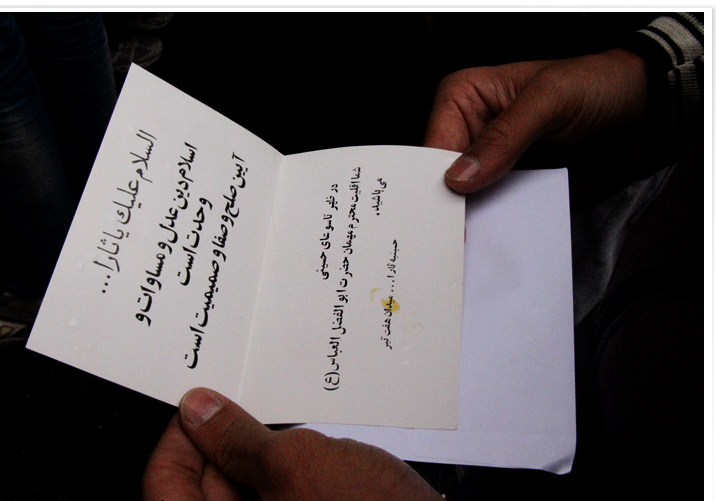 السلام عليك يا ثارا...
اسلام دين عدل و مساوات و
وحدت است
آيين صلح و صفا و صميميت است
در ظهر تاسوعای حسينی
شما اقليت محترم مهمان حضرت ابوالفضل العباس(ع)
می باشيد.
حسينيه ثارا... ميدان هفت تير